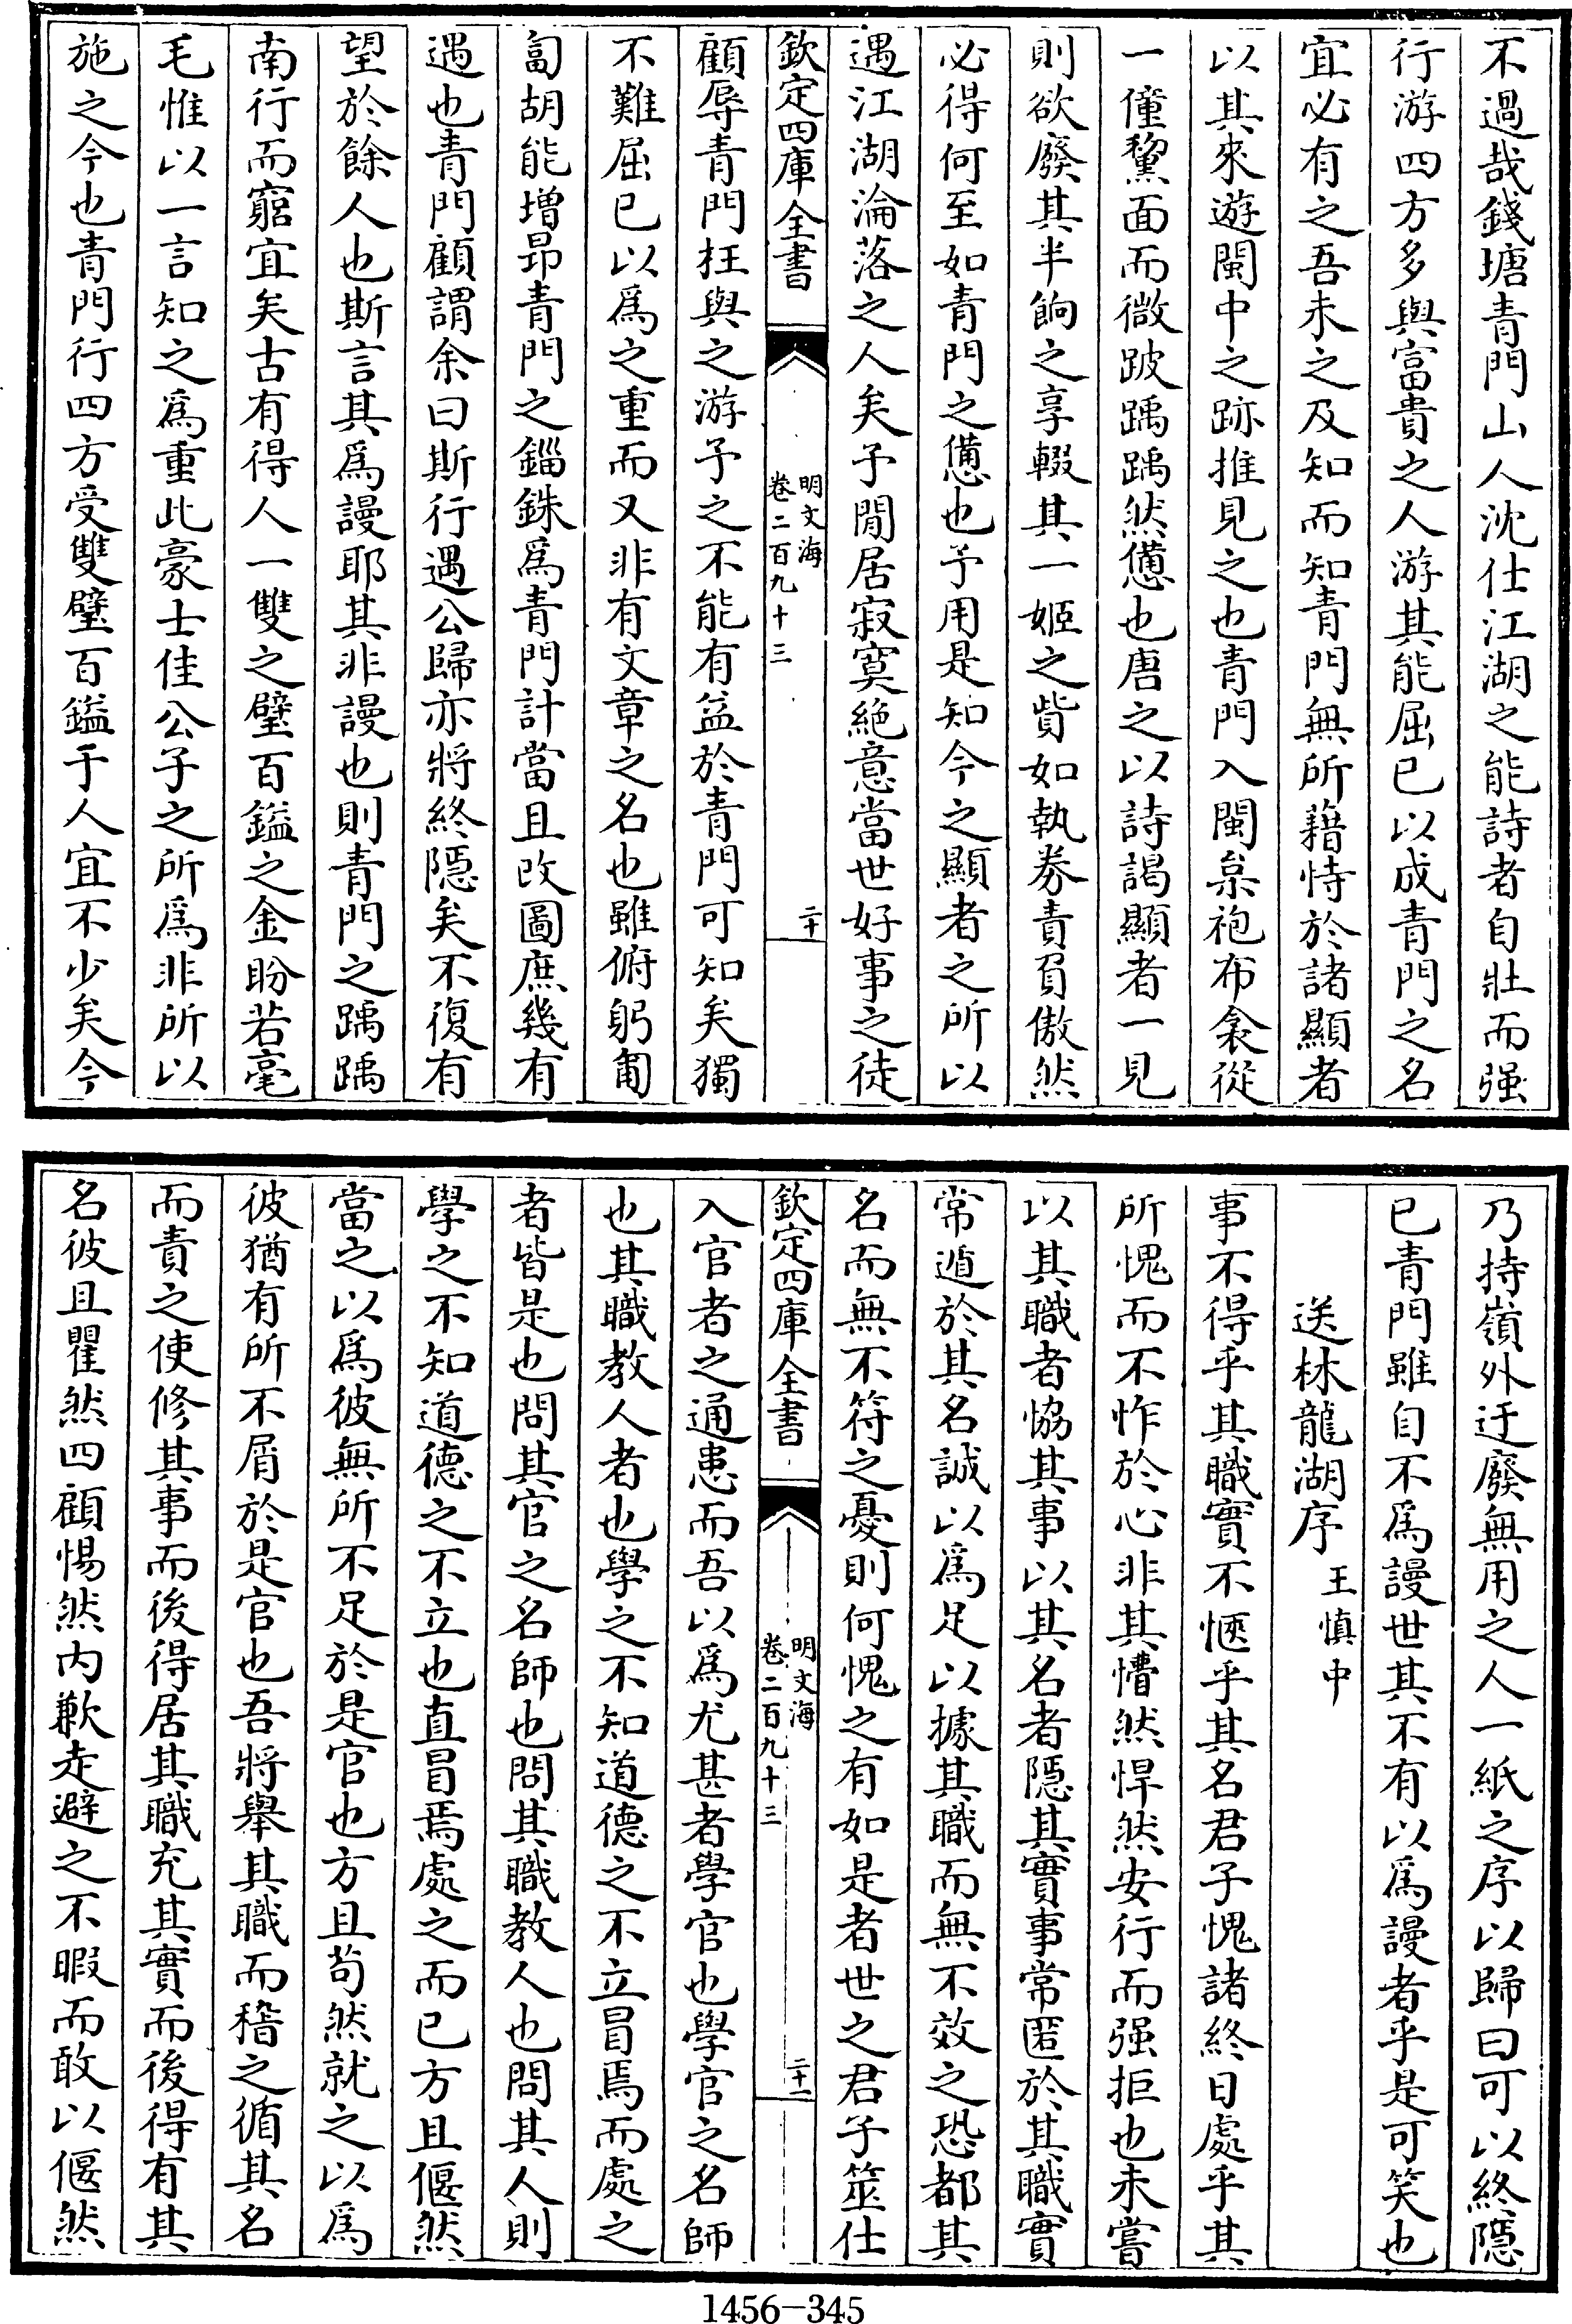 不過哉錢塘青門山人沈仕江湖之能詩者自壯而强
行游四方多與富貴之人游其能屈已以成青門之名
宜必有之吾未之及知而知青門無所藉恃於諸顯者
以其來遊閩中之跡推見之也青門入閩枲袍布衾從
一僮黧面而微跛踽踽然憊也唐之以詩謁顯者一見
則欲廢其半餉之享輟其一姬之貲如執券責負傲然
必得何至如青門之憊也予用是知今之顯者之所以
遇江湖淪落之人矣予閒居寂寞絶意當世好事之徒
欽定四庫全書
明文海
卷二百九十三
二十
顧辱青門枉與之游予之不能有益於青門可知矣獨
不難屈已以爲之重而又非有文章之名也雖俯躬匍
匐胡能增昻青門之錙銖爲青門計當且改圖庶幾有
遇也青門顧謂余曰斯行遇公歸亦將終隱矣不復有
望於餘人也斯言其爲謾耶其非謾也則青門之踽踽
南行而窮宜矣古有得人一雙之璧百鎰之金盼若毫
毛惟以一言知之爲重此豪士佳公子之所爲非所以
施之今也青門行四方受雙璧百鎰于人宜不少矣今
乃持嶺外迂廢無用之人一紙之序以歸曰可以終隱
已青門雖自不爲謾世其不有以爲謾者乎是可笑也
送林龍湖序 王慎中
事不得乎其職實不愜乎其名君子愧諸終日處乎其
所愧而不怍於心非其懵然悍然安行而强拒也未嘗
以其職者恊其事以其名者隱其實事常匿於其職實
常遁於其名誠以爲足以據其職而無不效之恐都其
名而無不符之憂則何愧之有如是者世之君子筮仕
欽定四庫全書
明文海
卷二百九十三
二十一
入官者之通患而吾以爲尤甚者學官也學官之名師
也其職教人者也學之不知道德之不立冒焉而處之
者皆是也問其官之名師也問其職教人也問其人則
學之不知道德之不立也直冒焉處之而已方且偃然
當之以爲彼無所不足於是官也方且苟然就之以爲
彼猶有所不屑於是官也吾將舉其職而稽之循其名
而責之使修其事而後得居其職充其實而後得有其
名彼且瞿然四顧惕然内歉走避之不暇而敢以偃然
1456-345